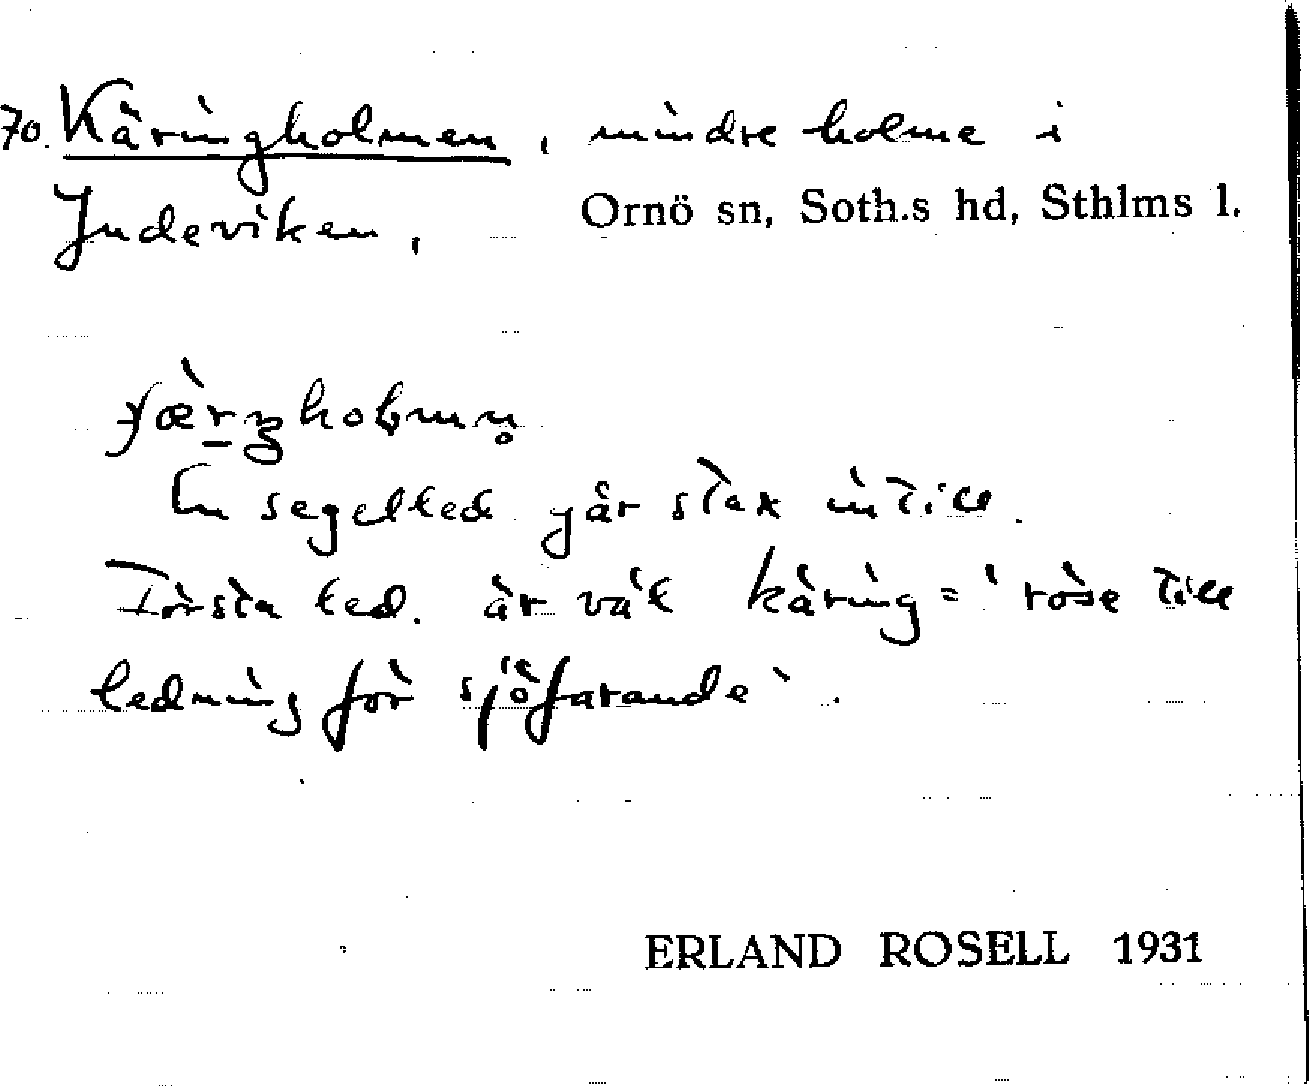 70. Käringholmen, mindre holme i
Indeviken, Ornö sn, Soth.s hd, Sthlms l.
En segelled går strax intill.
Första led. är väl käring = 'röse till
ledning för sjöfarande'.
ERLAND ROSELL 1931